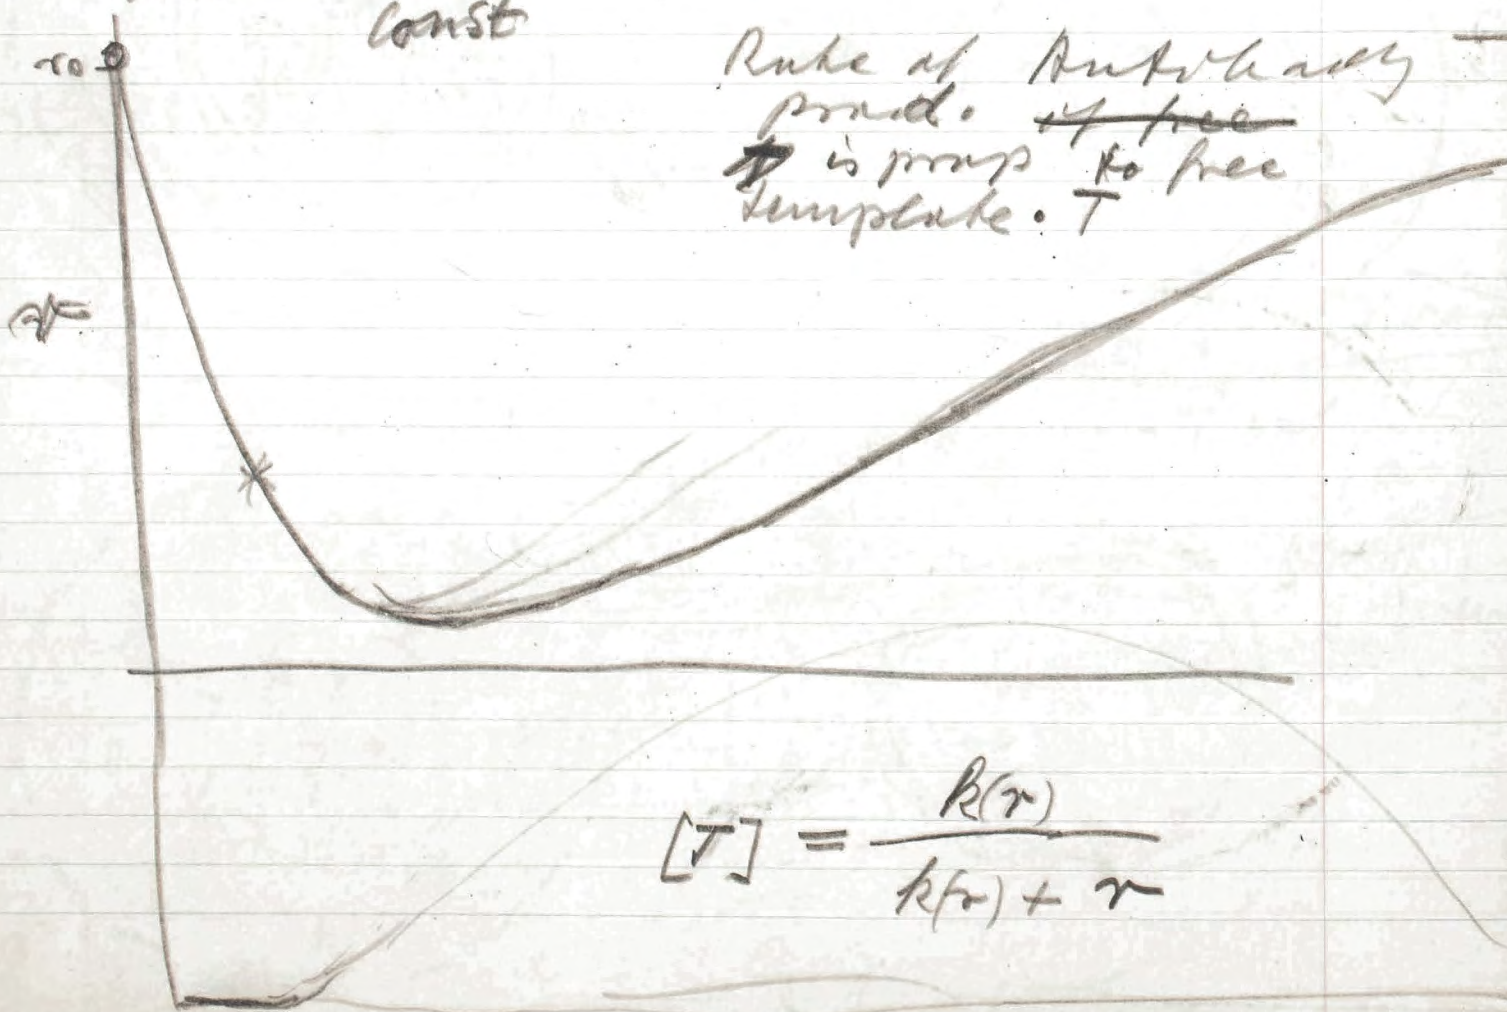 const
r₀
Rate of Antibody
prod. ~~if free~~
is prop to free
template. T
r
[T] = k(r) / k(r) + r